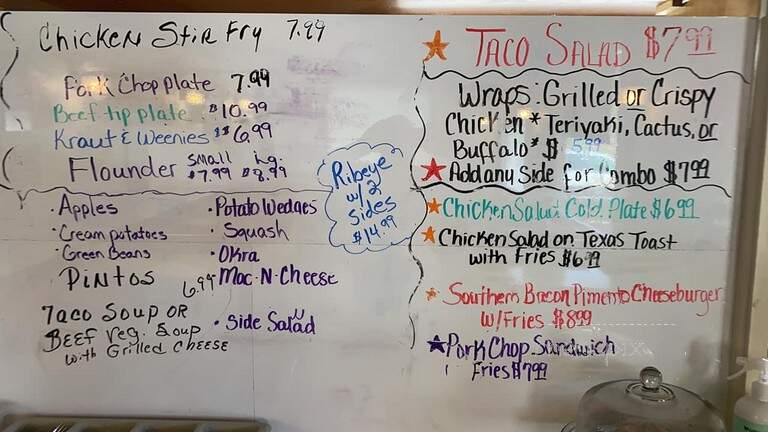 Chicken Stir Fry 7.99
Pork Chop Plate 7.99
Beef tip plate $10.99
Kraut & Weenies $6.99
Flounder small $7.99 Lg. $8.99
• Apples
• Cream potatoes
• Green Beans
Pintos
• Potato Wedges
• Squash
• Okra
• Mac-N-Cheese
• Side Salad
6.99
Taco Soup OR
Beef Veg. Soup
with Grilled Cheese
Ribeye
w/2
Sides
$14.99
Taco Salad $7.99
Wraps: Grilled or Crispy
Chicken * Teriyaki, Cactus, or
Buffalo * $ 5.99
Add any Side for Combo $7.99
Chicken Salad Cold Plate $6.99
Chicken Salad on Texas Toast
with Fries $6.99
Southern Bacon Pimento Cheeseburger
w/Fries $8.99
Pork Chop Sandwich
Fries $7.99